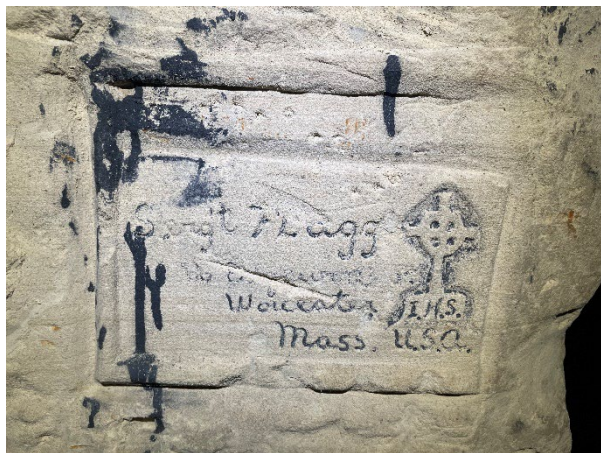 Serg't Flagg
Worcester
I.H.S.
Mass. U.S.A.